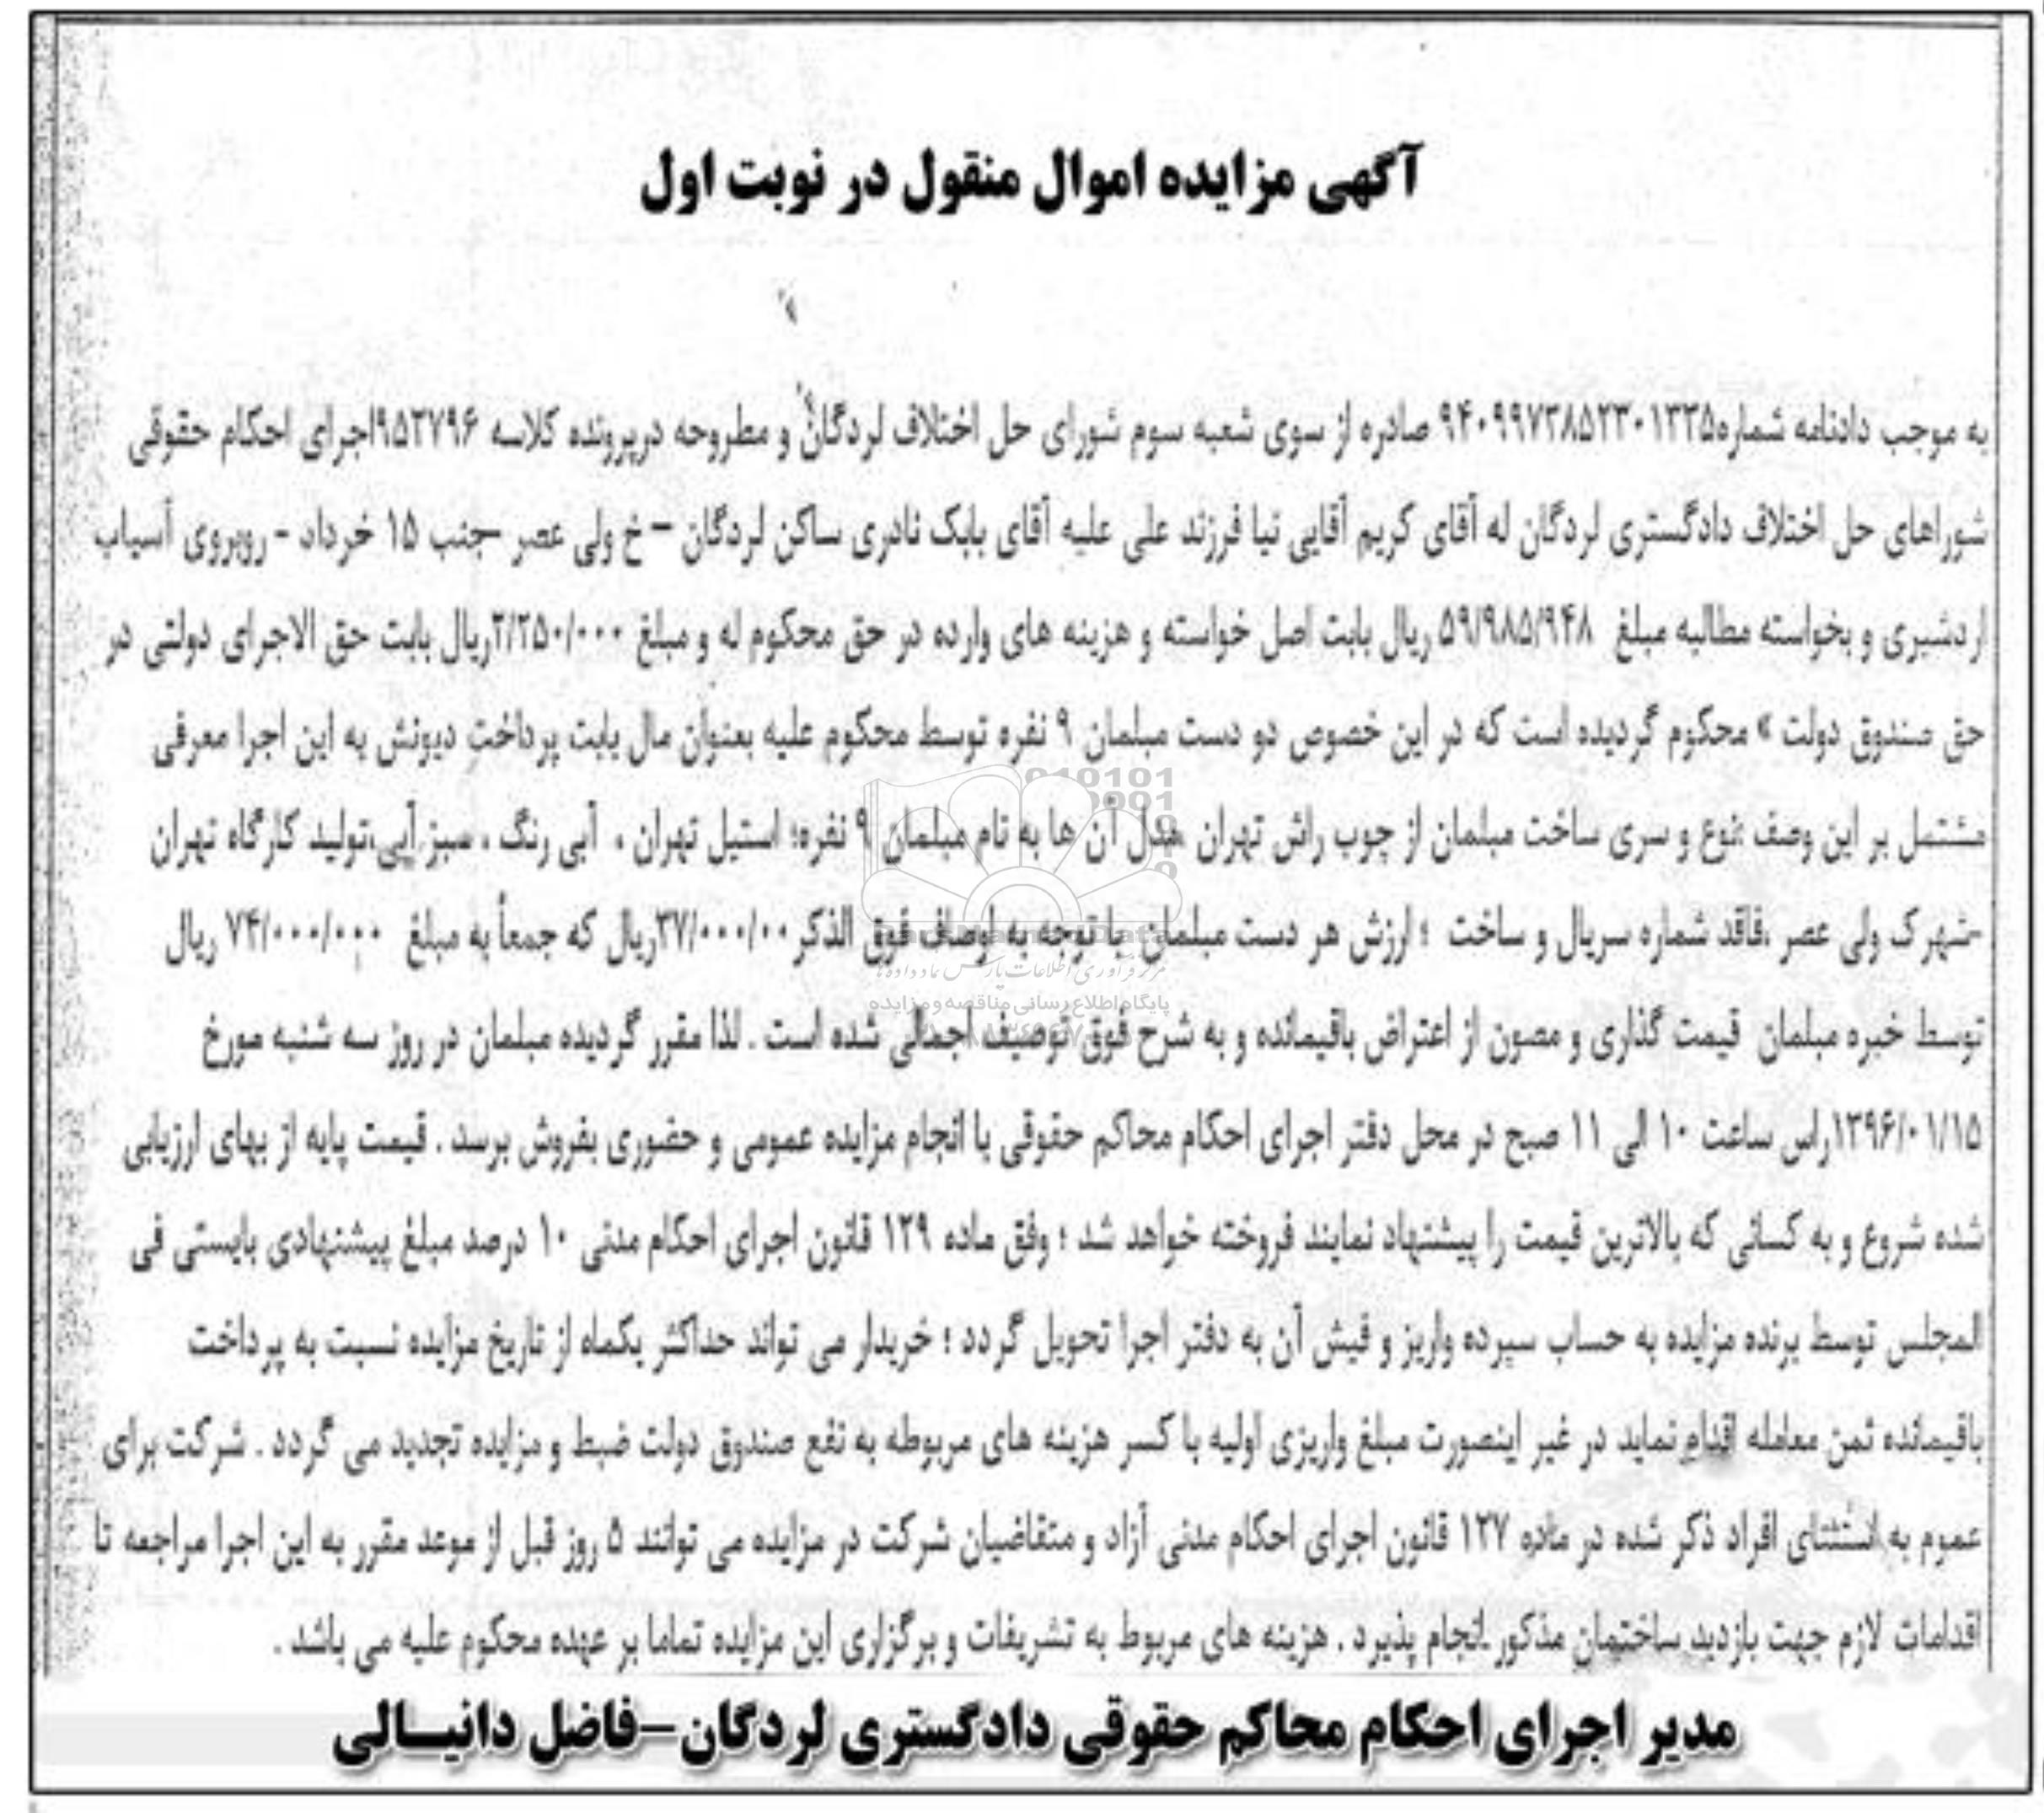 آگهی مزایده اموال منقول در نوبت اول
به موجب دادنامه شماره۹۴۰۹۹۷۳۸۵۲۳۰۱۳۳۵ صادره از سوی شعبه سوم شورای حل اختلاف لردگان و مطروحه درپرونده کلاسه ۹۵۲۷۹۶اجرای احکام حقوقی
شوراهای حل اختلاف دادگستری لردگان له آقای کریم آقایی نیا فرزند علی علیه آقای بابک نادری ساکن لردگان – خ ولی عصر –جنب ۱۵ خرداد - روبروی آسیاب
اردشیری و بخواسته مطالبه مبلغ ۵۹/۹۸۵/۹۴۸ ریال بابت اصل خواسته و هزینه های وارده در حق محکوم له و مبلغ ۲/۲۵۰/۰۰۰ریال بابت حق الاجرای دولتی در
حق صندوق دولت » محکوم گردیده است که در این خصوص دو دست مبلمان ۹ نفره توسط محکوم علیه بعنوان مال بابت پرداخت دیونش به این اجرا معرفی
مشتمل بر این وصف :نوع و سری ساخت مبلمان از چوب راش تهران ،مدل آن ها به نام مبلمان ۹ نفره؛ استیل تهران ، آبی رنگ ، سبز آبی،تولید کارگاه تهران
-شهرک ولی عصر ،فاقد شماره سریال و ساخت ؛ ارزش هر دست مبلمان با توجه به اوصاف فوق الذکر ۳۷/۰۰۰/۰۰ریال که جمعاً به مبلغ ۷۴/۰۰۰/۰۰۰ ریال
پایگاه اطلاع رسانی مناقصه و مزایده
توسط خبره مبلمان قیمت گذاری و مصون از اعتراض باقیمانده و به شرح فوق توصیف اجمالی شده است . لذا مقرر گردیده مبلمان در روز سه شنبه مورخ
۱۳۹۶/۰۱/۱۵راس ساعت ۱۰ الی ۱۱ صبح در محل دفتر اجرای احکام محاکم حقوقی با انجام مزایده عمومی و حضوری بفروش برسد . قیمت پایه از بهای ارزیابی
شده شروع و به کسانی که بالاترین قیمت را پیشنهاد نمایند فروخته خواهد شد ؛ وفق ماده ۱۲۹ قانون اجرای احکام مدنی ۱۰ درصد مبلغ پیشنهادی بایستی فی
المجلس توسط برنده مزایده به حساب سپرده واریز و فیش آن به دفتر اجرا تحویل گردد ؛ خریدار می تواند حداکثر یکماه از تاریخ مزایده نسبت به پرداخت
باقیمانده ثمن معامله اقدام نماید در غیر اینصورت مبلغ واریزی اولیه با کسر هزینه های مربوطه به نفع صندوق دولت ضبط و مزایده تجدید می گردد . شرکت برای
عموم به استثنای افراد ذکر شده در ماده ۱۲۷ قانون اجرای احکام مدنی آزاد و متقاضیان شرکت در مزایده می توانند ۵ روز قبل از موعد مقرر به این اجرا مراجعه تا
اقدامات لازم جهت بازدید ساختمان مذکور انجام پذیرد . هزینه های مربوط به تشریفات و برگزاری این مزایده تماما بر عهده محکوم علیه می باشد .
مدیر اجرای احکام محاکم حقوقی دادگستری لردگان–فاضل دانیالی